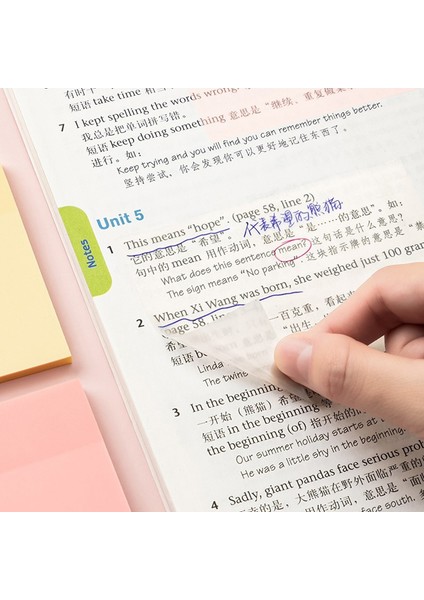 有时
短语 take time
7 I kept spelling the words wrong
我总是把单词拼写错。
短语 keep doing something 意思是“继续、重复做某
进行。如:
Keep trying and you will find you can remember things better.
坚持尝试,你会发现你可以更好地记住东西了。
Unit 5
Notes
1 This means "hope". (page 58, line 2)
代表希望的熊猫
它的意思是“希望”。
句中的 mean 用作动词,意思是“是……的意思”。如:
What does this sentence mean? 这句话是什么意思?
The sign means "No parking". 这块指示牌的意思是“禁
2 When Xi Wang was born, she weighed just 100 gran
page 58, line
一百克重,看起来
希
“出生
短语 b
Linda
The twins
3 In the beginning
一开始(熊猫)希望
短语 in the beginning
the beginning (of) 指开始的
Our summer holiday starts at
He was a little shy in the beginning.
4 Sadly, giant pandas face serious prob
的是,大熊猫在野外面临严重的
用作动词,意思是“面
face south.